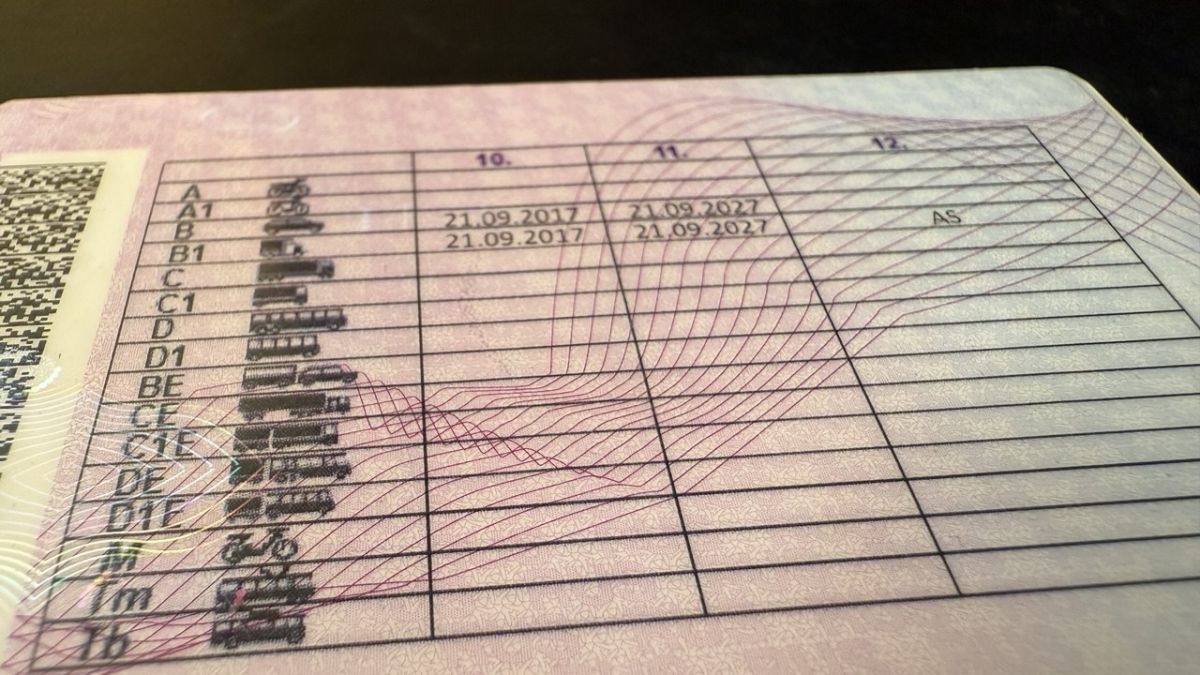 10. 11. 12.
A
A1
B 21.09.2017 21.09.2027
B1 21.09.2017 21.09.2027 AS
C
C1
D
D1
BE
CE
C1E
DE
D1E
M
Tm
Tb